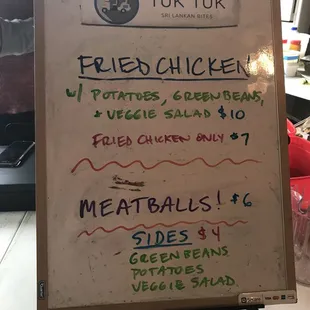 TUK TUK
SRI LANKAN BITES
FRIED CHICKEN
w/ POTATOES, GREEN BEANS,
+ VEGGIE SALAD $10
FRIED CHICKEN ONLY $7
MEATBALLS! $6
SIDES $4
GREEN BEANS
POTATOES
VEGGIE SALAD